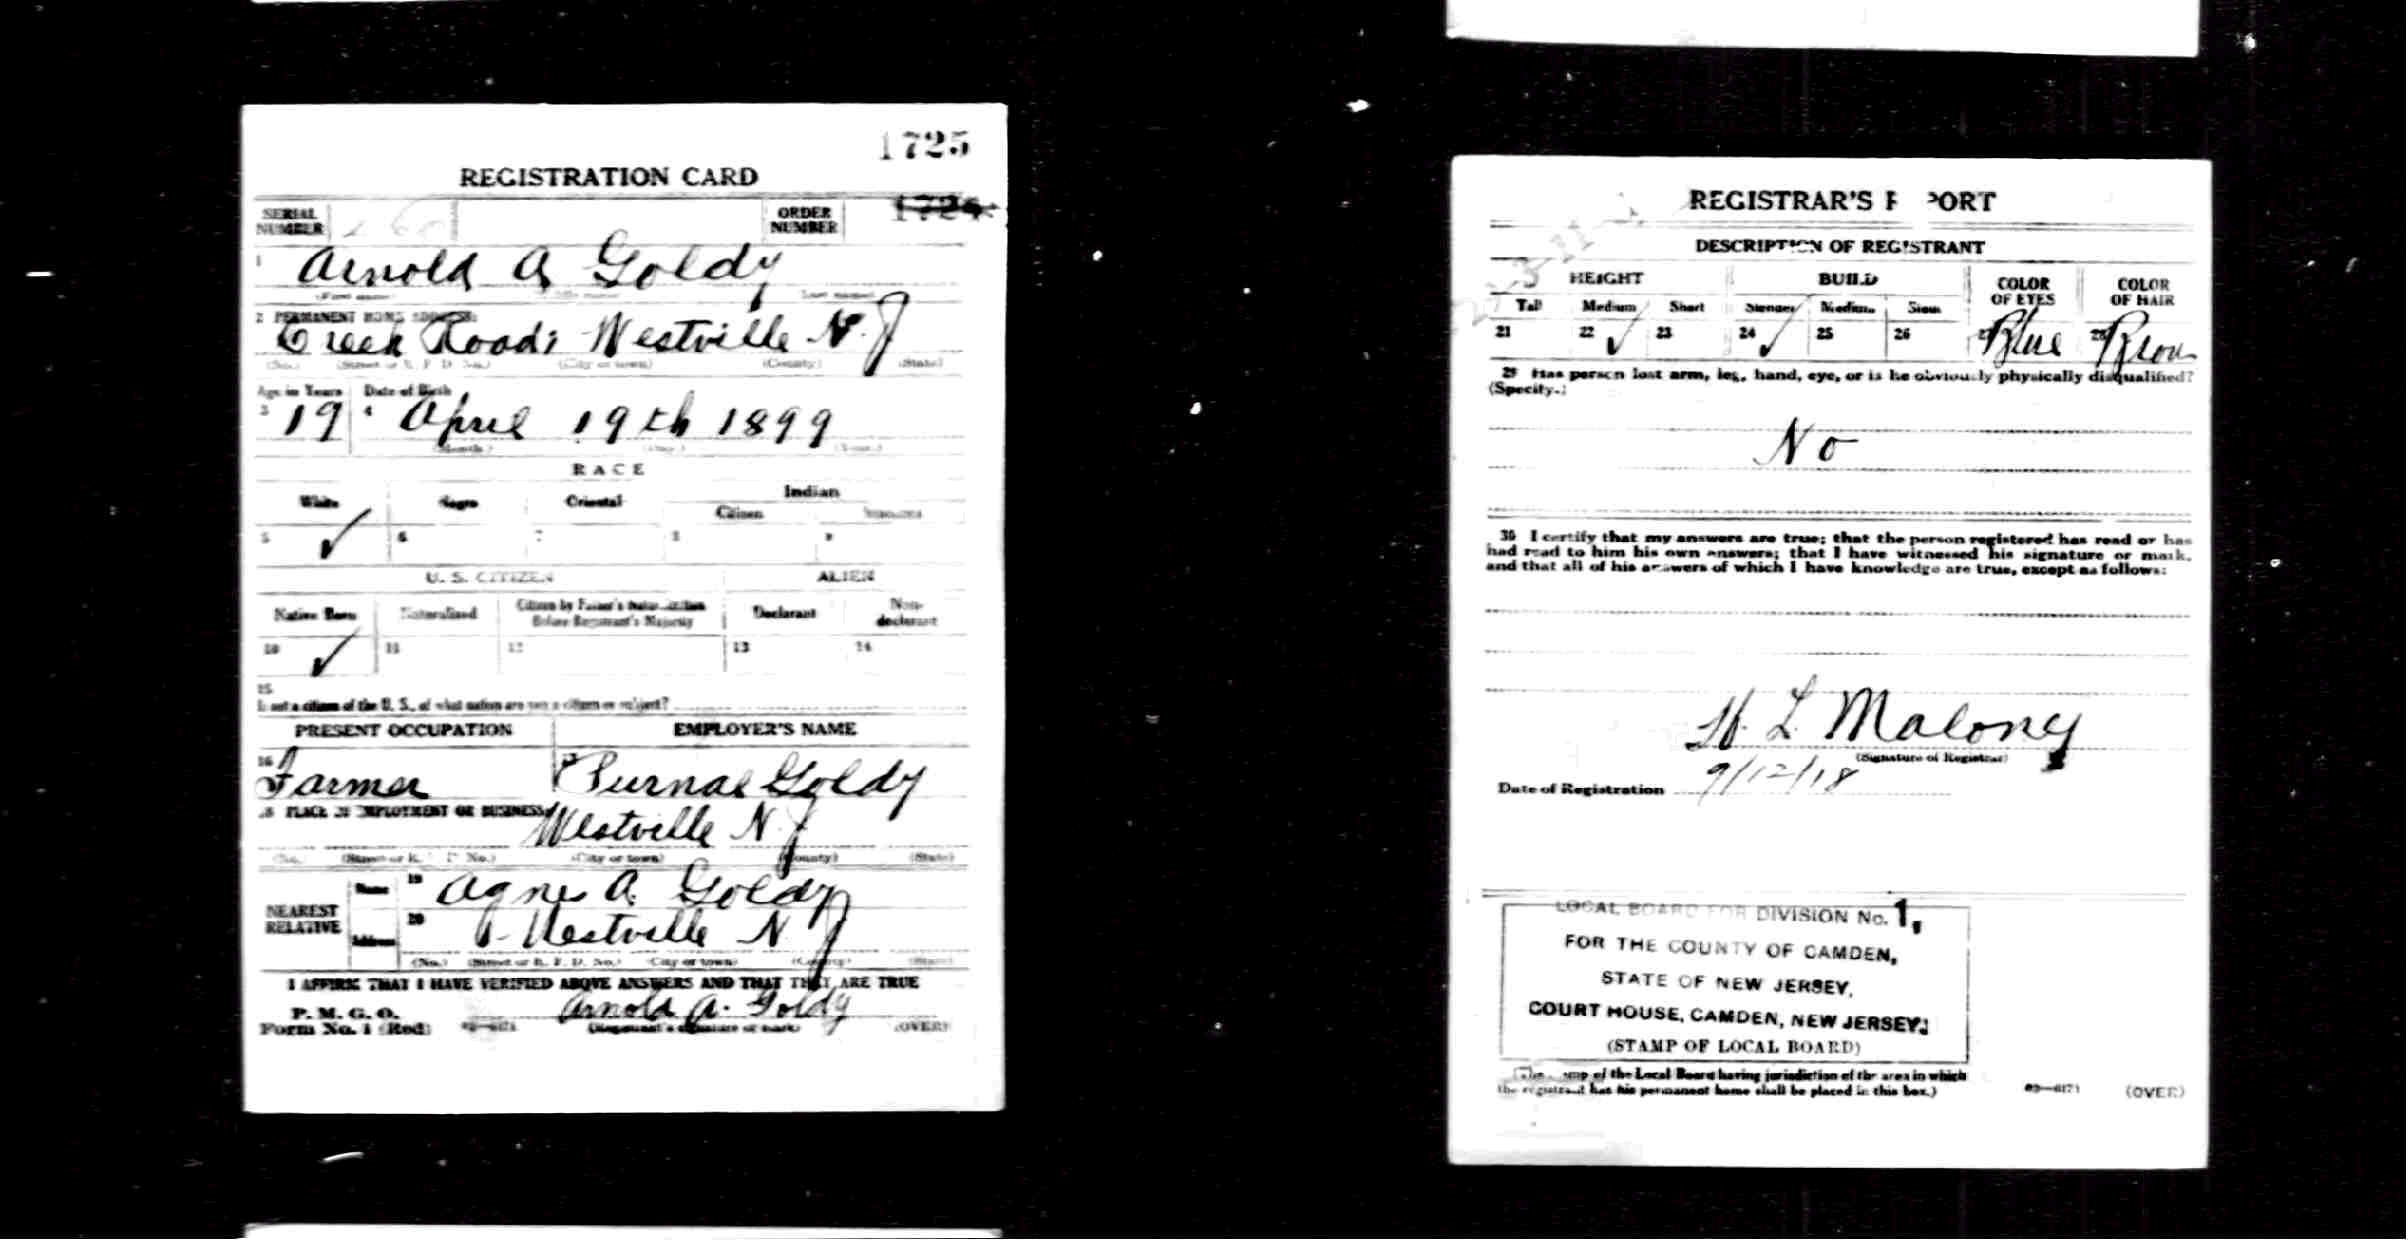 1725
REGISTRATION CARD
SERIAL NUMBER
ORDER NUMBER
1 Arnold A Goldy
(First name) (Middle name) (Last name)
2 PERMANENT HOME ADDRESS:
Creek Road; Westville N. J
(No.) (Street or R. F. D. No.) (City or town) (County) (State)
Age in Years Date of Birth
3 19 4 April 19th 1899
(Month.) (Day.) (Year.)
RACE
White Negro Oriental Indian
Citizen
5 ✓ 6 7 8 9
U. S. CITIZEN ALIEN
Native Born Naturalized Citizen by Father's Naturalization Before Registrant's Majority Declarant Non-declarant
10 ✓ 11 12 13 14
15
If not a citizen of the U. S., of what nation are you a citizen or subject?
PRESENT OCCUPATION EMPLOYER'S NAME
16 Farmer Goldy
18 PLACE OF EMPLOYMENT OR BUSINESS:
Westville N. J
(No.) (Street or R. F. D. No.) (City or town) (County) (State)
NEAREST RELATIVE
Name 19 Agnes A. Goldy
Address 20 Westville N J
(No.) (Street or R. F. D. No.) (City or town) (County) (State)
I AFFIRM THAT I HAVE VERIFIED ABOVE ANSWERS AND THAT THEY ARE TRUE
P. M. G. O.
Form No. 1 (Red) Arnold A. Goldy
(Registrant's signature or mark) (OVER)
REGISTRAR'S R PORT
DESCRIPTION OF REGISTRANT
HEIGHT BUILD COLOR OF EYES COLOR OF HAIR
Tall Medium Short Slender Medium Stout
21 22 ✓ 23 24 ✓ 25 26 27 Blue 28 Brown
29 Has person lost arm, leg, hand, eye, or is he obviously physically disqualified?
(Specify.)
No
30 I certify that my answers are true; that the person registered has read or has
had read to him his own answers; that I have witnessed his signature or mark,
and that all of his answers of which I have knowledge are true, except as follows:
H. L. Malony
(Signature of Registrar)
Date of Registration 9/12/18
LOCAL BOARD FOR DIVISION No. 1,
FOR THE COUNTY OF CAMDEN,
STATE OF NEW JERSEY,
COURT HOUSE, CAMDEN, NEW JERSEY.
(STAMP OF LOCAL BOARD)
of the Local Board having jurisdiction of the area in which
the registrant has his permanent home shall be placed in this box.)
03—6171 (OVER)